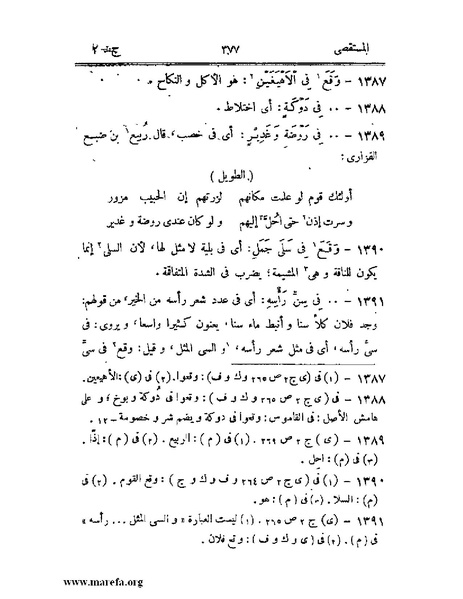 المستقصى ٣٧٧ ج - ٢
١٣٨٧ - وَقَعَ¹ فى الْأَهْيَغَيْنِ²: هو الأكل و النكاح .
١٣٨٨ - ٠٠ فى دَوْكَةٍ: أى اختلاط .
١٣٨٩ - ٠٠ فى رَوْضَةٍ وَغَدِيرٍ: أى فى خصب، قال رُبيع¹ بن ضبع
الفزارى:
(الطويل)
أولئك قوم لو علمت مكانهم لزرتهم إن الحبيب مزور
وسرت إذن² حتى أحل³ إليهم ولو كان عندى روضة و غدير
١٣٩٠ - وَقَعَ¹ فى سَلَى جَمَلٍ: أى فى بلية لا مثل لها، لأن السلى² إنما
يكون للناقة و هى³ المشيمة؛ يضرب فى الشدة المتفاقمة .
١٣٩١ - ٠٠ فى سِنِّ رَأْسِهِ: أى فى عدد شعر رأسه من الخير، من قولهم:
وجد فلان كلأ سنا و أنبط ماء سنا، يعنون كثيرا واسعا، و يروى: فى
سىّ رأسه، أى فى مثل شعر رأسه، ¹و السى المثل، و قيل: وقع² فى سىّ
١٣٨٧ - (١) فى (ى ج ٢ ص ٢٦٥ و ك و ف): وقعوا. (٢) فى (ى): الأهيعين.
١٣٨٨ - فى (ى ج ٢ ص ٢٦٥ و ك و ف): وقعوا فى دُوكة و بوخ، و على
هامش الأصل: فى القاموس: وقعوا فى دوكة و يضم شر و خصومة - ١٢ .
١٣٨٩ - (ى) ج ٢ ص ٢٦٩ . (١) فى (م): الربيع . (٢) فى (م): إذًا .
(٣) فى (م): احل .
١٣٩٠ - (١) فى (ى ج ٢ ص ٢٦٤ و ف و ك و ج): وقع القوم . (٢) فى
(م): السلا . (٣) فى (م): هو .
١٣٩١ - (ى) ج ٢ ص ٢٦٥ . (١) ليست العبارة « و السى المثل ... رأسه »
فى (م) . (٢) فى (ى و ك و ف): وقع فلان .
www.marefa.org